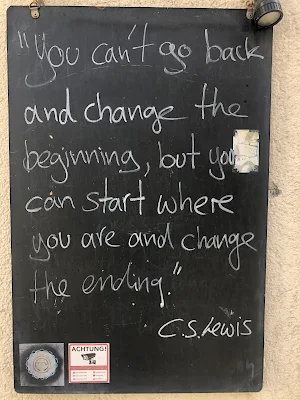 "You can't go back
and change the
beginning, but you
can start where
you are and change
the ending."
C.S. Lewis
ACHTUNG!